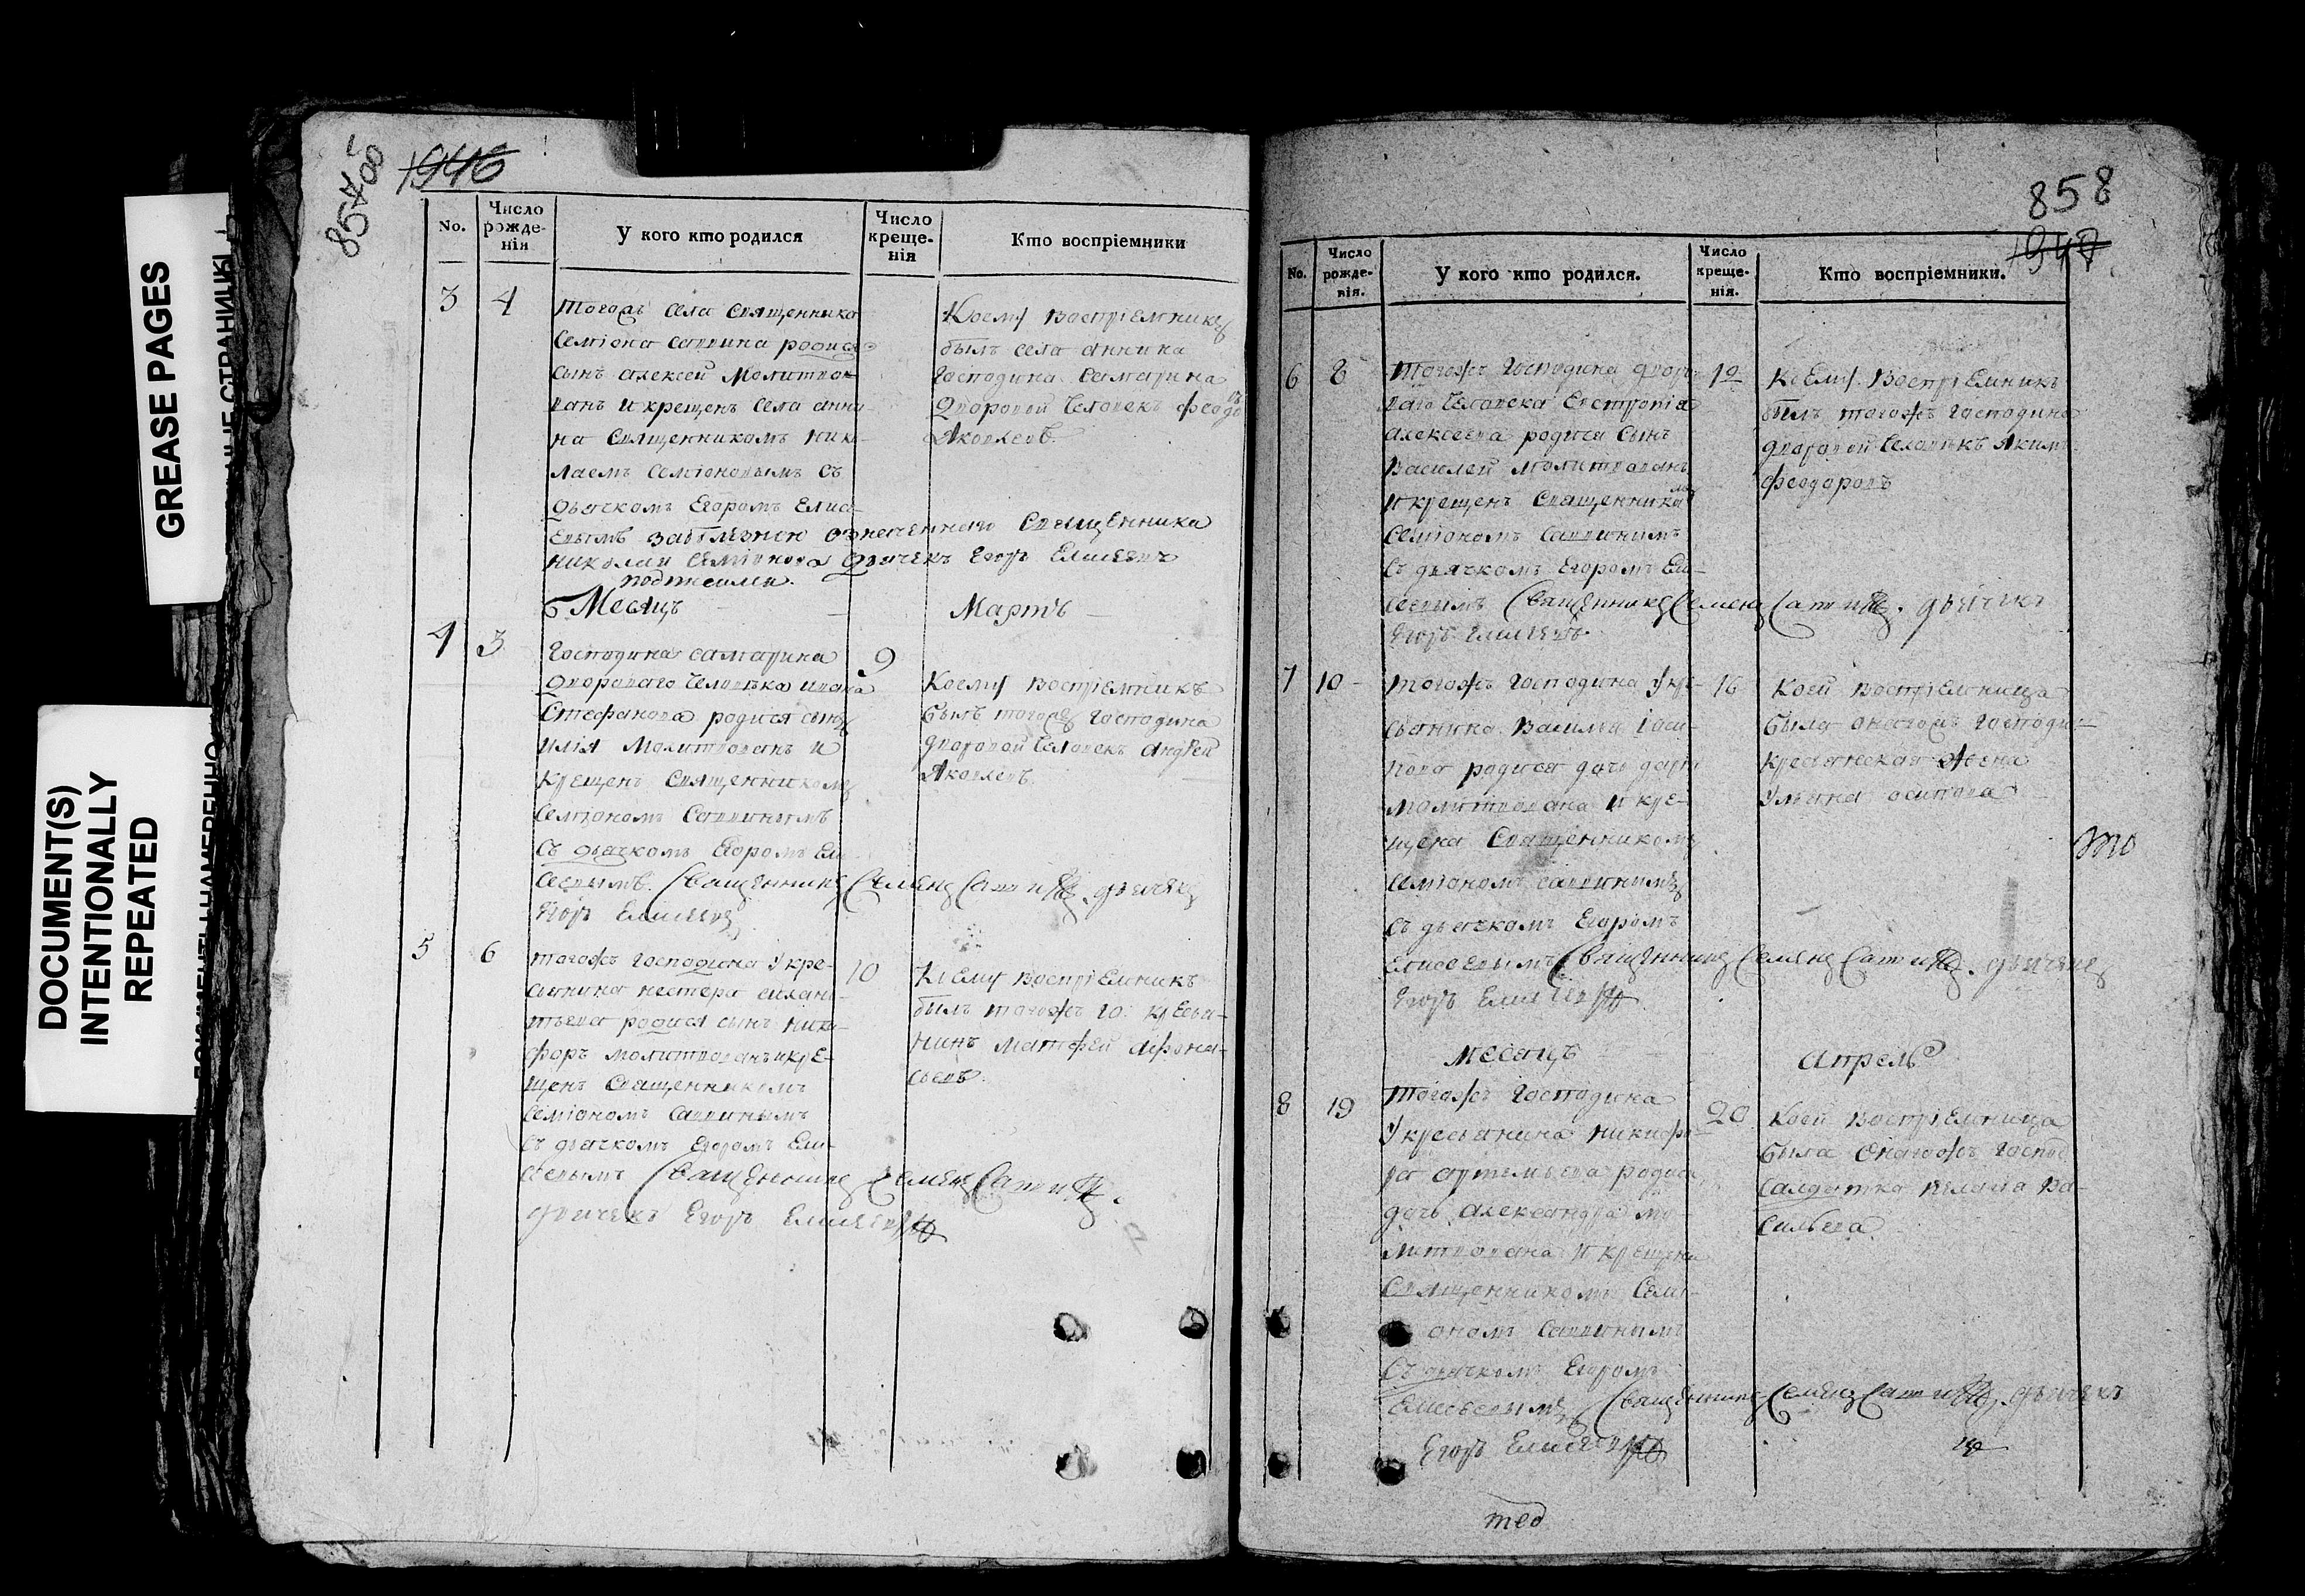 GREASE PAGES
DOCUMENT(S)
INTENTIONALLY
REPEATED
857 об
1946
No.
Число рожде-нія
У кого кто родился
Число креще-нія
Кто воспріемники
3 4
тогожъ села Священника
Семіона Саввина родися
сынъ алексей Молитво-
ванъ и крещенъ села анни-
на Священникомъ нико-
лаемъ Семіоновымъ съ
дьячкомъ Егоромъ Елисѣ-
евымъ
Священника
николай Семіонова Дьячекъ Егоръ Елисеевъ
подписали
Коему воспріемникъ
былъ села аннина
Господина Самарина
Дворовой Человекъ феодоръ
Яковлевъ.
Месяцъ
Мартъ
4 3
Господина самарина
Двороваго Человѣка ивана
Стефанова родися сынъ
илія Молитвованъ и
крещенъ Священникомъ
Семіономъ Саввинымъ
Съ дьячкомъ Егоромъ Ели-
сеевымъ. Священникъ Семенъ Саввинъ. дьячекъ
Егоръ Елисеевъ
9
Коему воспріемникъ
былъ тогожъ Господина
дворовой Человекъ Андрей
Яковлевъ.
5 6
тогожъ Господина У кре-
стьянина нестера силан-
тьева родися сынъ ники-
форъ молитвованъ и кре-
щенъ Священникомъ
Семіономъ Саввинымъ
съ дьячкомъ Егоромъ Ели-
сеевымъ Священникъ Семенъ Саввинъ.
дьячекъ Егоръ Елисеевъ
10
Коему воспріемникъ
былъ тогожъ го: кресья-
нинъ Матфей афона-
сьевъ.
858
1947
No.
Число рожде-нія.
У кого кто родился.
Число креще-нія.
Кто воспріемники.
6 8
Тогожъ Господина двoро-
ваго Человека Евстропія
алексеева родися Сынъ
Василей молитвованъ
и крещенъ Священникомъ
Семіономъ Саввинымъ
Съ дьячкомъ Егоромъ Ели-
сеевымъ Священникъ Семенъ Саввинъ. дьячекъ
Егоръ Елисеевъ.
12
Коему воспріемникъ
былъ тогожъ Господина
дворовой Человѣкъ Яким
феодоровъ
7 10
Тогожъ Господина У кре-
сьянина Василья
родися дочь дарья
молитвована и кре-
щена Священникомъ
Семіономъ саввинымъ
съ дьячкомъ Егоромъ
Елисеевымъ Священникъ Семенъ Саввинъ. дьячекъ
Егоръ Елисеевъ
16
Коей воспріемница
была онагожъ господи-
кресьянская Жена
Ульяна осипова
то
месяцъ
апрель
8 19
Тогожъ Господина
У кресьянина никифо-
ра артемьева родися
дочь александра мо-
литвована и крещена
Священникомъ Семі-
ономъ Саввинымъ
Съ дьячкомъ Егоромъ
Елисеевымъ Священникъ Семенъ Саввинъ. дьячекъ
Егоръ Елисеевъ
20
Коей воспріемница
была Онагожъ Господ
Салдатка пелагея Ва-
сильева